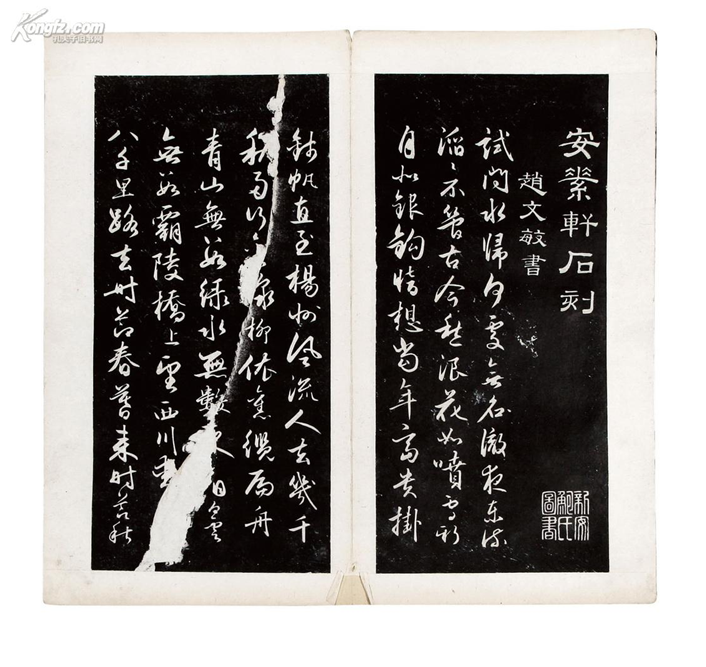 安素軒石刻
趙文敏書
試問水歸何處無名徹夜東流
滔〻不管古今愁浪花如噴雪新
月似銀鉤暗想當年富貴掛
錦帆直至楊州風流人去幾千
秋兩行柳依舊纜扁舟
青山無數綠水無數白雲
無數霸陵橋上望西川動
八千里路去時節春暮來時節秋
新安鮑氏圖書
Kongfz.com
孔夫子旧书网